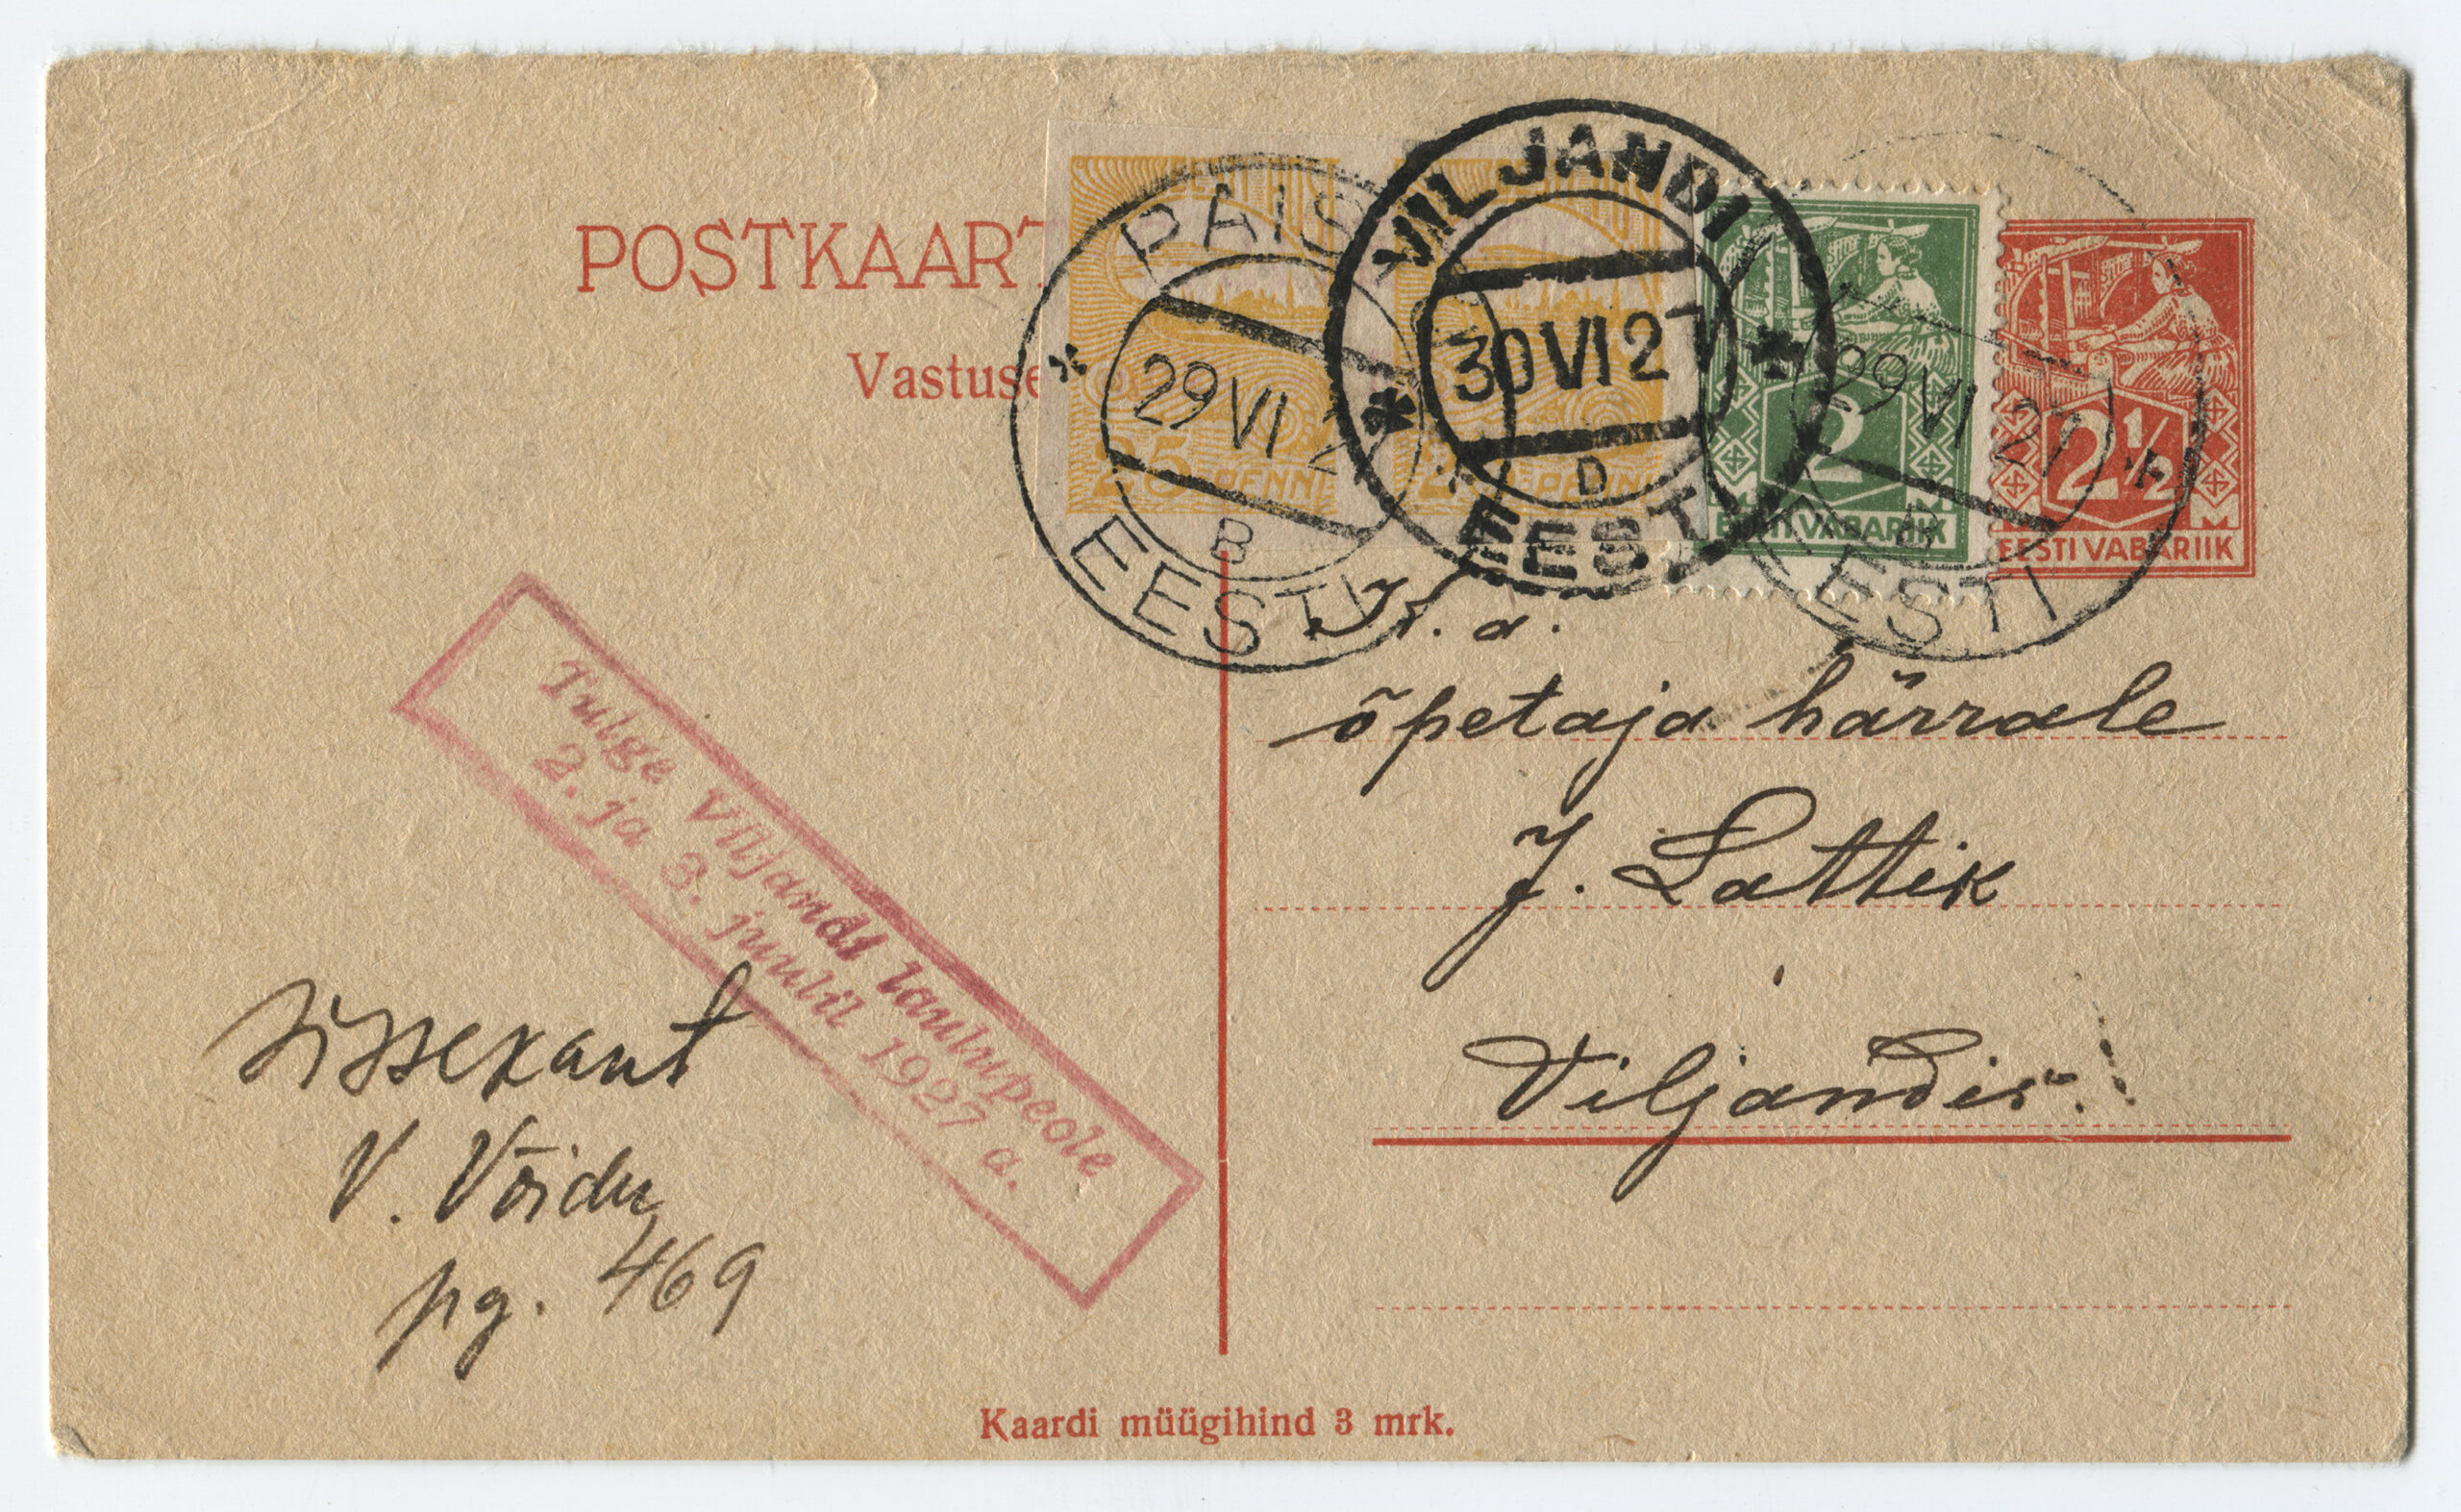 POSTKAART
Vastuse
PAIS
29 VI 2
B
EESTI
VILJANDI
30 VI 27
D
EESTI
29 VI 27
EESTI
25 PENNI
PENNI
2
EESTI VABARIIK
2½
M M
EESTI VABARIIK
Tulge Viljandi laulupeole
2. ja 3. juulil 1927 a.
õpetaja härrale
J. Lattik
Viljandis.
Sissekant
V. Võidu
pg. 469
Kaardi müügihind 3 mrk.